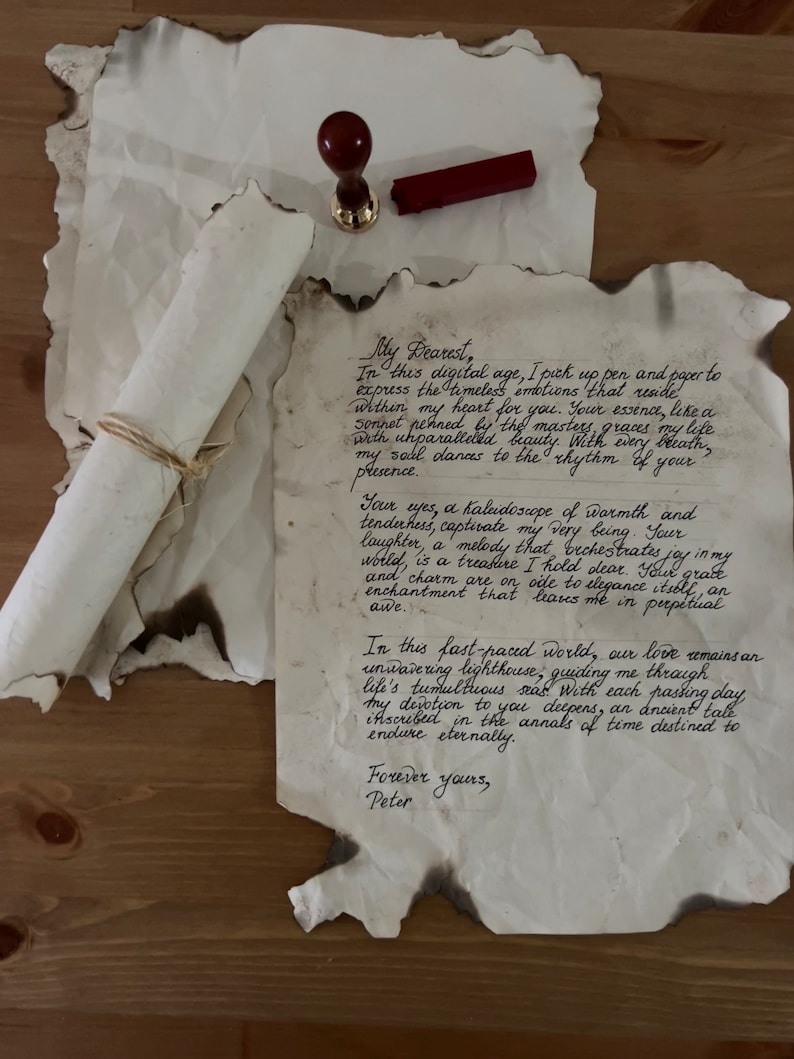 My Dearest,
In this digital age, I pick up pen and paper to
express the timeless emotions that reside
within my heart for you. Your essence, like a
sonnet penned by the masters, graces my life
with unparalleled beauty. With every breath,
my soul dances to the rhythm of your
presence.
Your eyes, a kaleidoscope of warmth and
tenderness, captivate my very being. Your
laughter, a melody that orchestrates joy in my
world, is a treasure I hold dear. Your grace
and charm are an ode to elegance itself, an
enchantment that leaves me in perpetual
awe.
In this fast-paced world, our love remains an
unwavering lighthouse, guiding me through
life's tumultuous seas. With each passing day,
my devotion to you deepens, an ancient tale
inscribed in the annals of time destined to
endure eternally.
Forever yours,
Peter